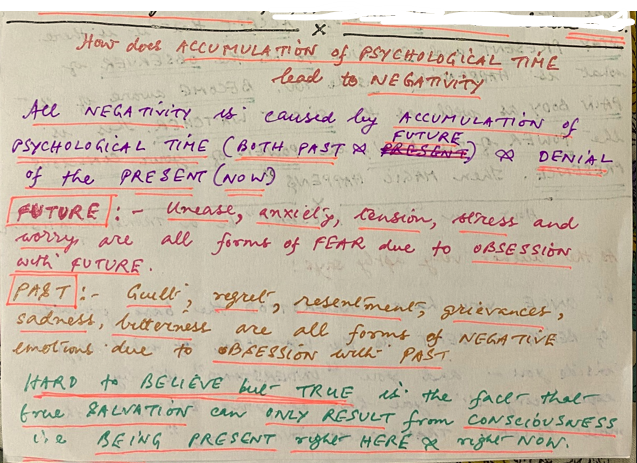 X
How does ACCUMULATION of PSYCHOLOGICAL TIME
lead to NEGATIVITY
All NEGATIVITY is caused by ACCUMULATION of
FUTURE
PSYCHOLOGICAL TIME (BOTH PAST & PRESENT) & DENIAL
of the PRESENT (NOW)
FUTURE :- Unease, anxiety, tension, stress and
worry are all forms of FEAR due to OBSESSION
with FUTURE.
PAST :- Guilt, regret, resentment, grievances,
sadness, bitterness are all forms of NEGATIVE
emotions due to OBSESSION with PAST.
HARD to BELIEVE but TRUE is the fact that
true SALVATION can ONLY RESULT from CONSCIOUSNESS
i.e BEING PRESENT right HERE & right NOW.